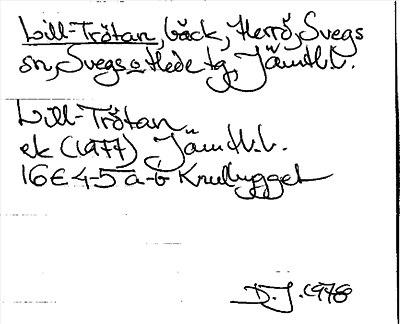 Lill-Trötan, bäck, Herrö, Svegs
sn, Svegs o Hede tg, Jämtl.l.
Lill-Trötan
ek (1977) Jämtl.l.
16E 4-5 a-b Knullygget
D.J. 1978